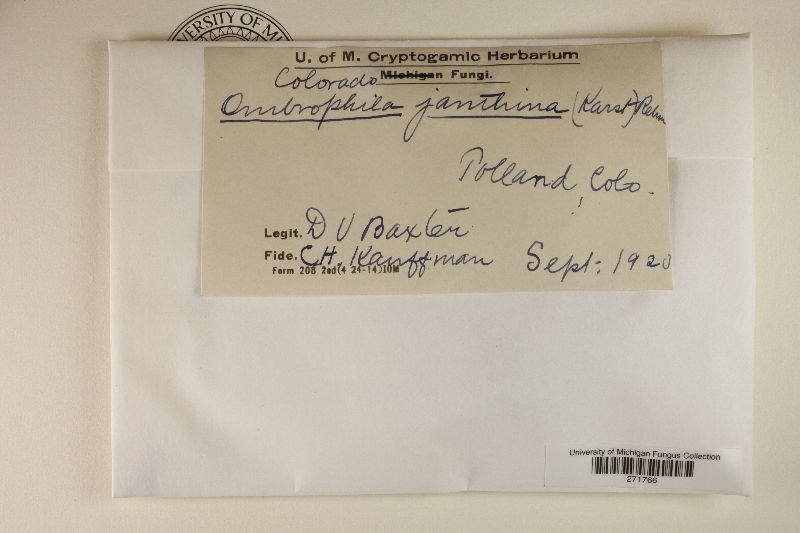 ERSITY OF MI
U. of M. Cryptogamic Herbarium
Colorado
Michigan Fungi.
Ombrophila janthina (Karst) Rehm
Tolland, Colo.
Legit. D V Baxter
Fide. C.H. Kauffman Sept. 1920
Form 208 2nd(4 24-14)10M
University of Michigan Fungus Collection
271766